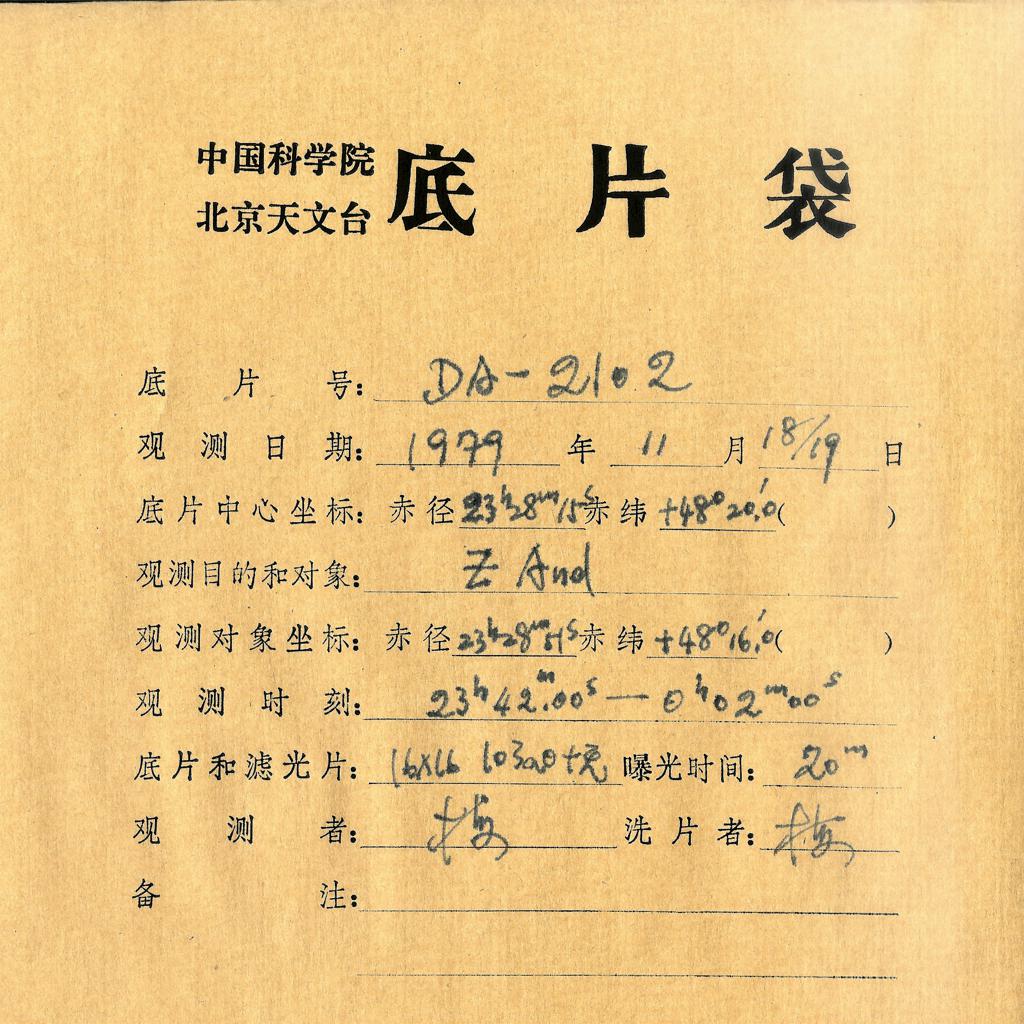 中国科学院
北京天文台 底片袋
底片号: DA-2102
观测日期: 1979 年 11 月 18/19 日
底片中心坐标: 赤径 23ʰ28ᵐ15ˢ 赤纬 +48°20.′0 ( )
观测目的和对象: Z And
观测对象坐标: 赤径 23ʰ28ᵐ51ˢ 赤纬 +48°16.′0 ( )
观测时刻: 23ʰ42ᵐ.00ˢ — 0ʰ02ᵐ00ˢ
底片和滤光片: 16x16 103aO + 曝光时间: 20ᵐ
观测者: 梅 洗片者: 梅
备注: